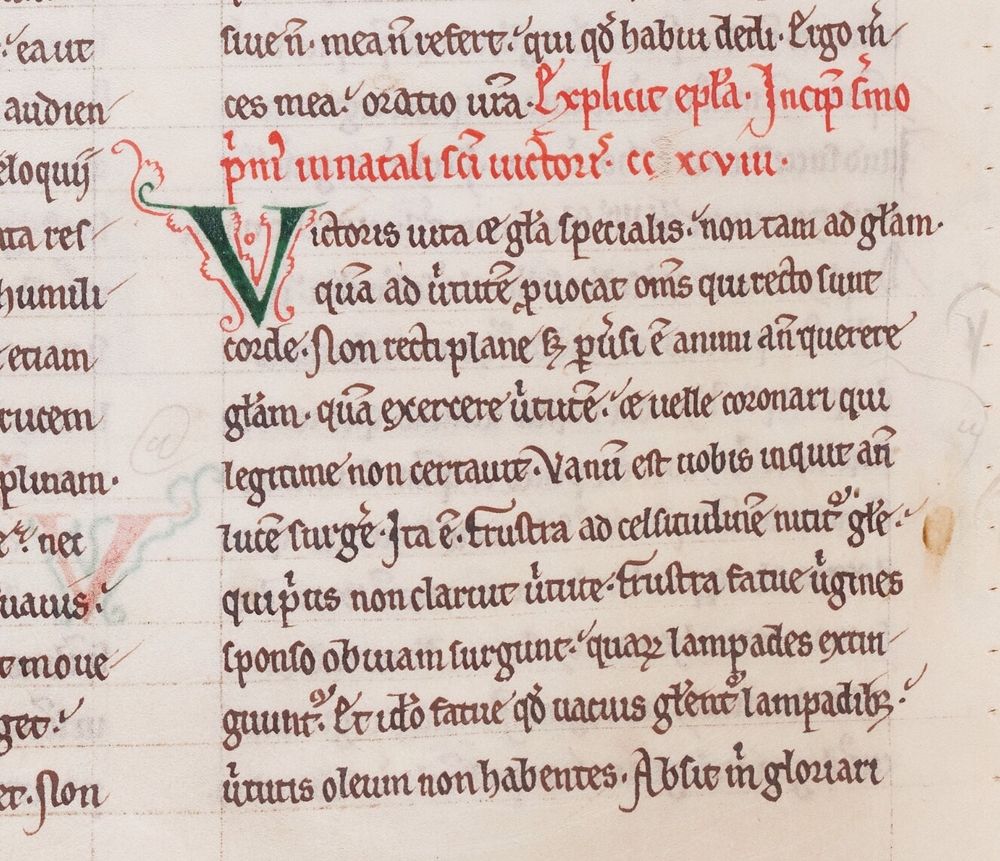 eaut
audien
eloquii
ata res
humili
etiam
crucem
plinam.
nec
uauis
t moue
get
et. Non
siue ñ. mea ñ refert. qui qd̃ habui dedi. Ergo m̃
ces mea. oratio ur̃a. Explicit epl̃a. Incip̃ sm̃o
pm̃ in natali sc̃i uictoris. cc xcviii.
Victoris uita & gl̃a specialis. non tam ad gl̃am.
quã ad uͥtutẽ ꝓuocat om̃s qui recto sunt
corde. Non recti plane sꝫ ꝑuͥsi ẽ animi añ querere
gl̃am. quã exercere uͥtutẽ. & uelle coronari qui
legitime non certauit. Vanũ est uobis inquit añ
lucẽ surgͤe. Ita ẽ. frustra ad celsitudinẽ nitit᷑ gl̃e.
qui pͥus non claruit uͥtute. frustra fatue uͥgines
sponso obuiam surgunt. quaꝝ lampades extin
guunt᷑. Et id̃o fatue qd̃ uacuis gl̃ent᷑ lampadibꝫ.
uͥtutis oleum non habentes. Absit m̃ gloriari